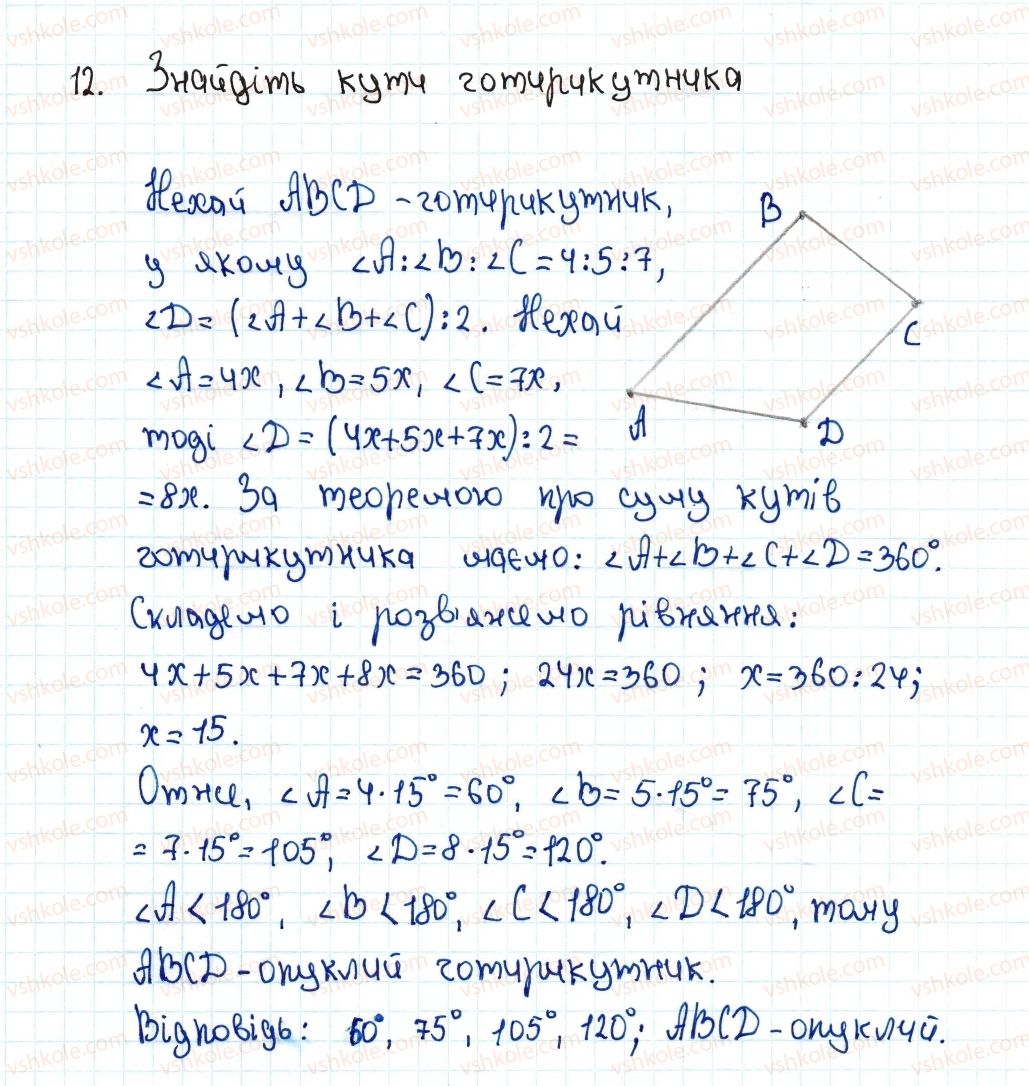 12. Знайдіть кути чотирикутника
Нехай ABCD - чотирикутник,
у якому ∠A:∠B:∠C=4:5:7,
∠D=(∠A+∠B+∠C):2. Нехай
∠A=4x, ∠B=5x, ∠C=7x,
тоді ∠D=(4x+5x+7x):2=
=8x. За теоремою про суму кутів
чотирикутника маємо: ∠A+∠B+∠C+∠D=360°.
Складемо і розв'яжемо рівняння:
4x+5x+7x+8x=360; 24x=360; x=360:24;
x=15.
Отже, ∠A=4·15°=60°, ∠B=5·15°=75°, ∠C=
=7·15°=105°, ∠D=8·15°=120°.
∠A<180°, ∠B<180°, ∠C<180°, ∠D<180°, тому
ABCD - опуклий чотирикутник.
Відповідь: 60°, 75°, 105°, 120°; ABCD - опуклий.
B
C
A
D
vshkole.com